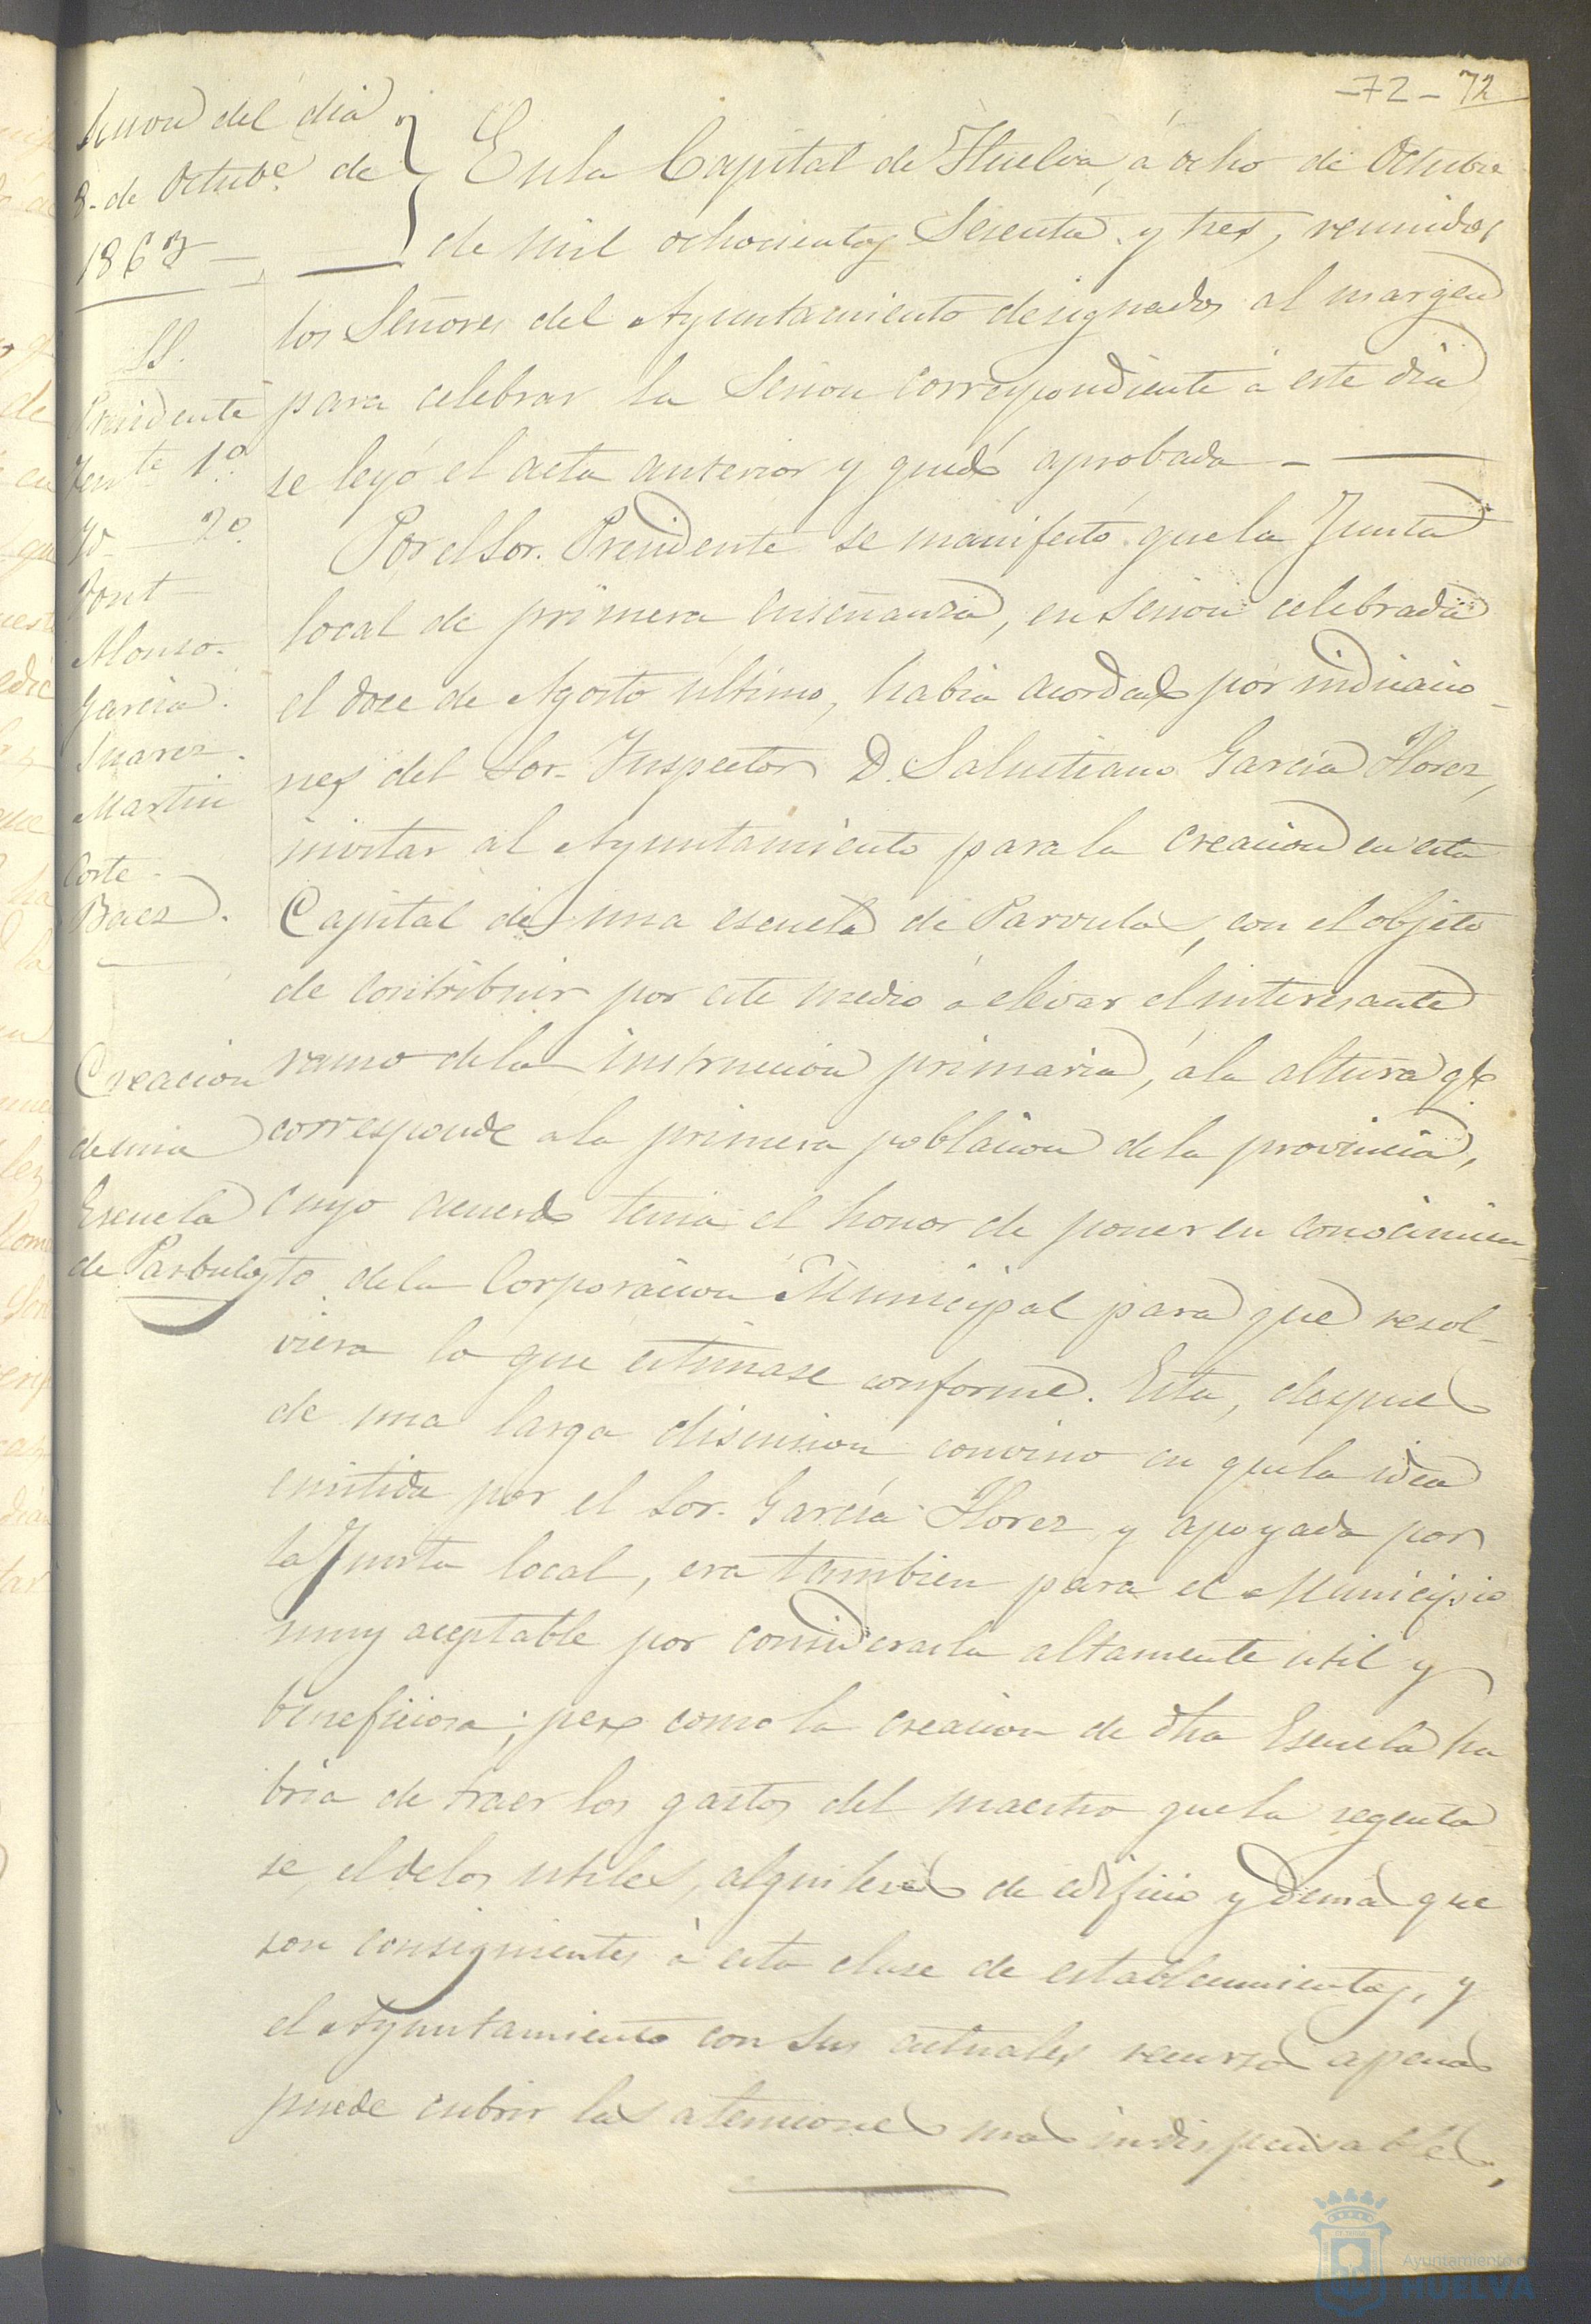 -72- 72
Sesion del dia
8. de Octube. de
1863
SS.
Presidente
Tente. 1º.
Yd 2º.
Font
Alonso.
Garcia.
Suarez.
Martin
Corte.
Baez.
En la Capital de Huelva, á ocho de Octubre
de mil ochocientos Sesenta y tres, reunidos
los Señores del Ayuntamiento designados al margen
para celebrar la Sesion correspondiente á este dia
se leyó el acta anterior y quedó aprobada
Por el Sor. Presidente se manifestó que la Junta
local de primera enseñanza, en sesion celebrada
el doce de Agosto último, habia acordado por indicacio-
nes del Sor. Inspector D. Salustiano Garcia Florez,
invitar al Ayuntamiento para la creacion en esta
Capital de una escuela de Parvulos, con el objeto
de contribuir por este medio á elevar el interesante
ramo de la instruccion primaria, á la altura qe
corresponde a la primera poblacion de la provincia,
cuyo acuerdo tenia el honor de poner en conocimien
to de la Corporacion Municipal para que resol-
viera lo que estimase conforme. Esta, despues
de una larga discusion convino en que la idea
emitida por el Sor. Garcia Florez y apoyada por
la Junta local, era tambien para el Municipio
muy aceptable por considerarla altamente util y
beneficiosa; pero como la creacion de dha Escuela ha
bria de traer los gastos del maestro que la regenta
se, el de los utiles, alquileres de edificio y demas que
son consiguientes á esta clase de establecimientos, y
el Ayuntamiento con sus actuales recursos apenas
puede cubrir las atenciones mas indispensables,
Creacion
de una
Escuela
de Parbulos
Ayuntamiento de
HUELVA